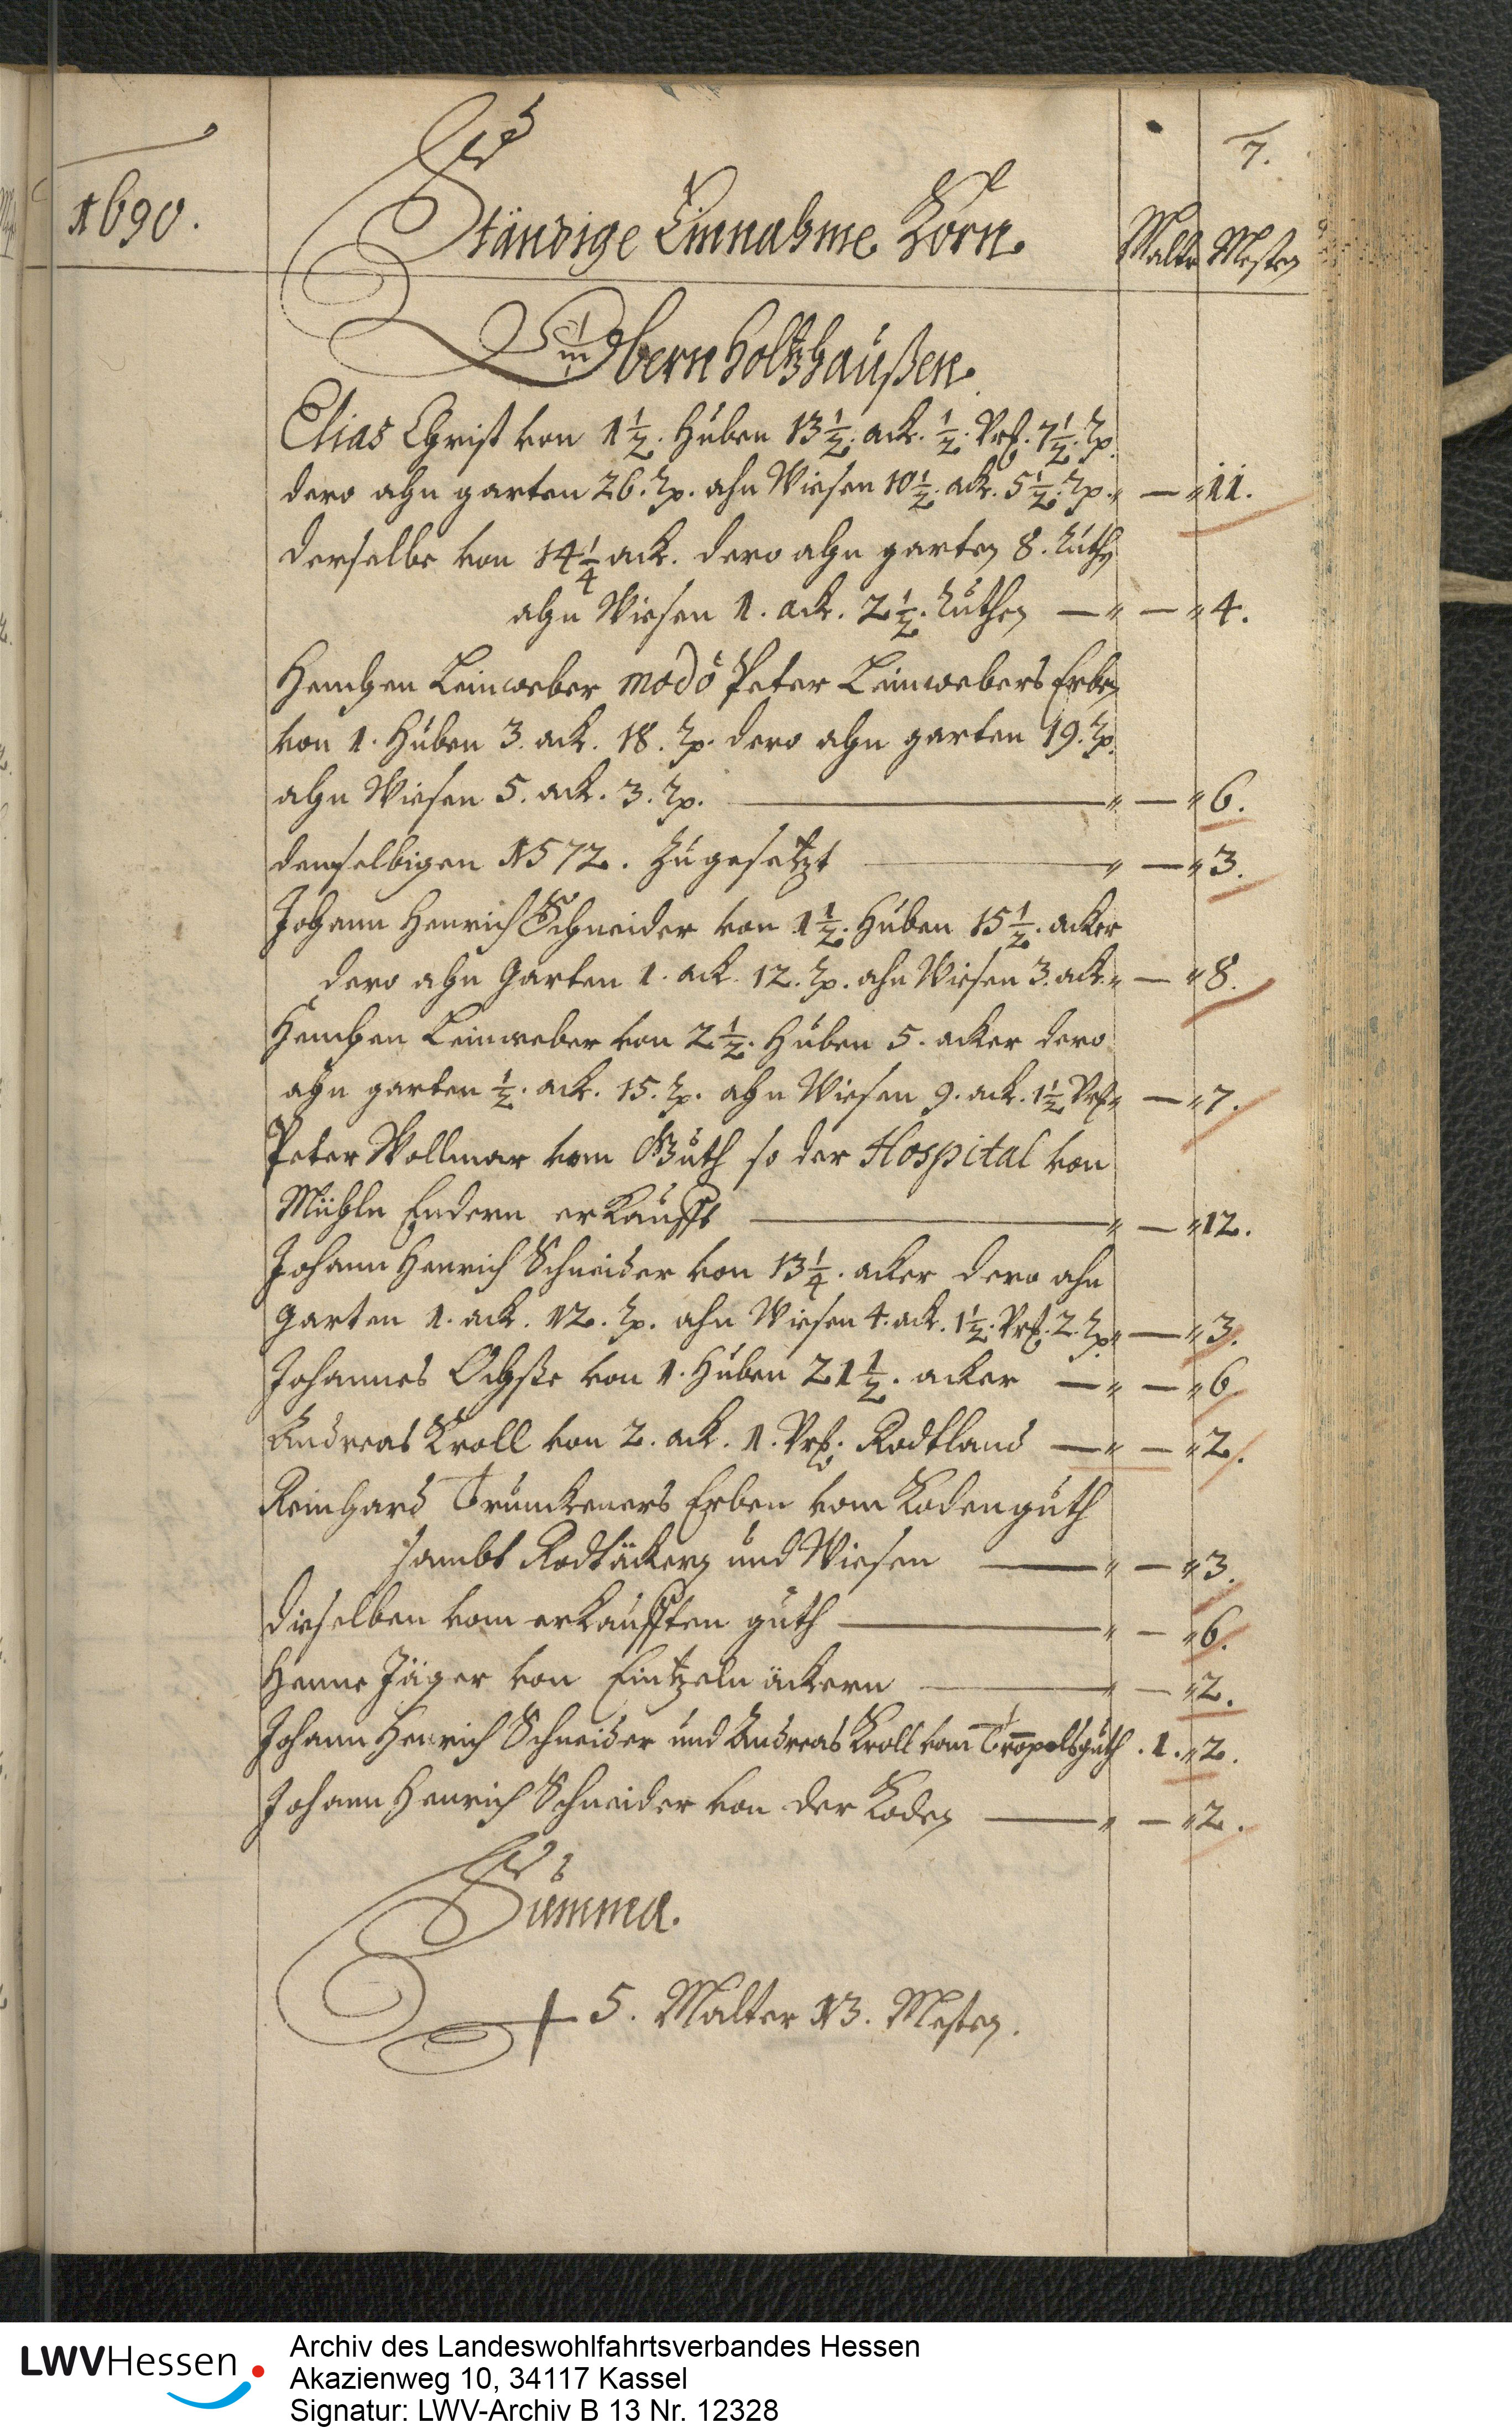 7.
1690.
Ständige Einnahme Korn.
Malter Mesten
in Obernholtzhaußen.
Elias Christ von 1 1/2. Huben 13 1/2. ack. 1/2. Vrß. 7 1/2. Rp.
dero ahn garten 26. Rp. ahn Wiesen 10 1/2. ack. 5 1/2. Rp. " — " 11.
derselbe von 14 1/4 ack. dero ahn garten 8. Ruthen
ahn Wiesen 1. ack. 2 1/2. Ruthen — " — " 4.
Henchen Leinweber modo Peter Leinwebers Erben
von 1. Huben 3. ack. 18. Rp. dero ahn garten 19. Rp.
ahn Wiesen 5. ack. 3. Rp. — " — " 6.
demselbigen 1572. zugesetzt — " — " 3.
Johann Henrich Schneider von 1 1/2. Huben 15 1/2. acker
dero ahn Garten 1. ack. 12. Rp. ahn Wiesen 3. ack. " — " 8.
Henchen Leinweber von 2 1/2. Huben 5. acker dero
ahn garten 1/2. ack. 15. Rp. ahn Wiesen 9. ack. 1 1/2 Vrß " — " 7.
Peter Vollmar vom Guth so der Hospital von
Mühln Endern erkaufft — " — " 12.
Johann Henrich Schneider von 13 1/4. acker dero ahn
Garten 1. ack. 12. Rp. ahn Wiesen 4. ack. 1 1/2. Vrß. 2. Rp " — " 3.
Johannes Ochße von 1. Huben 21 1/2. acker — " — " 6.
Andreas Kroll von 2. ack. 1. Vrß. Rodtland — " — " 2.
Reinhard Trunckeners Erben vom Rodenguth
sambt Rodtäckern und Wiesen — " — " 3.
dieselben vom erkaufften guth — " — " 6.
Henne Jäger von Eintzeln äckern — " — " 2.
Johann Henrich Schneider und Andreas Kroll vom Tropelsguth . 1. " 2.
Johann Henrich Schneider von der Roden — " — " 2.
Summa.
5. Malter 13. Mesten.
LWVHessen
Archiv des Landeswohlfahrtsverbandes Hessen
Akazienweg 10, 34117 Kassel
Signatur: LWV-Archiv B 13 Nr. 12328